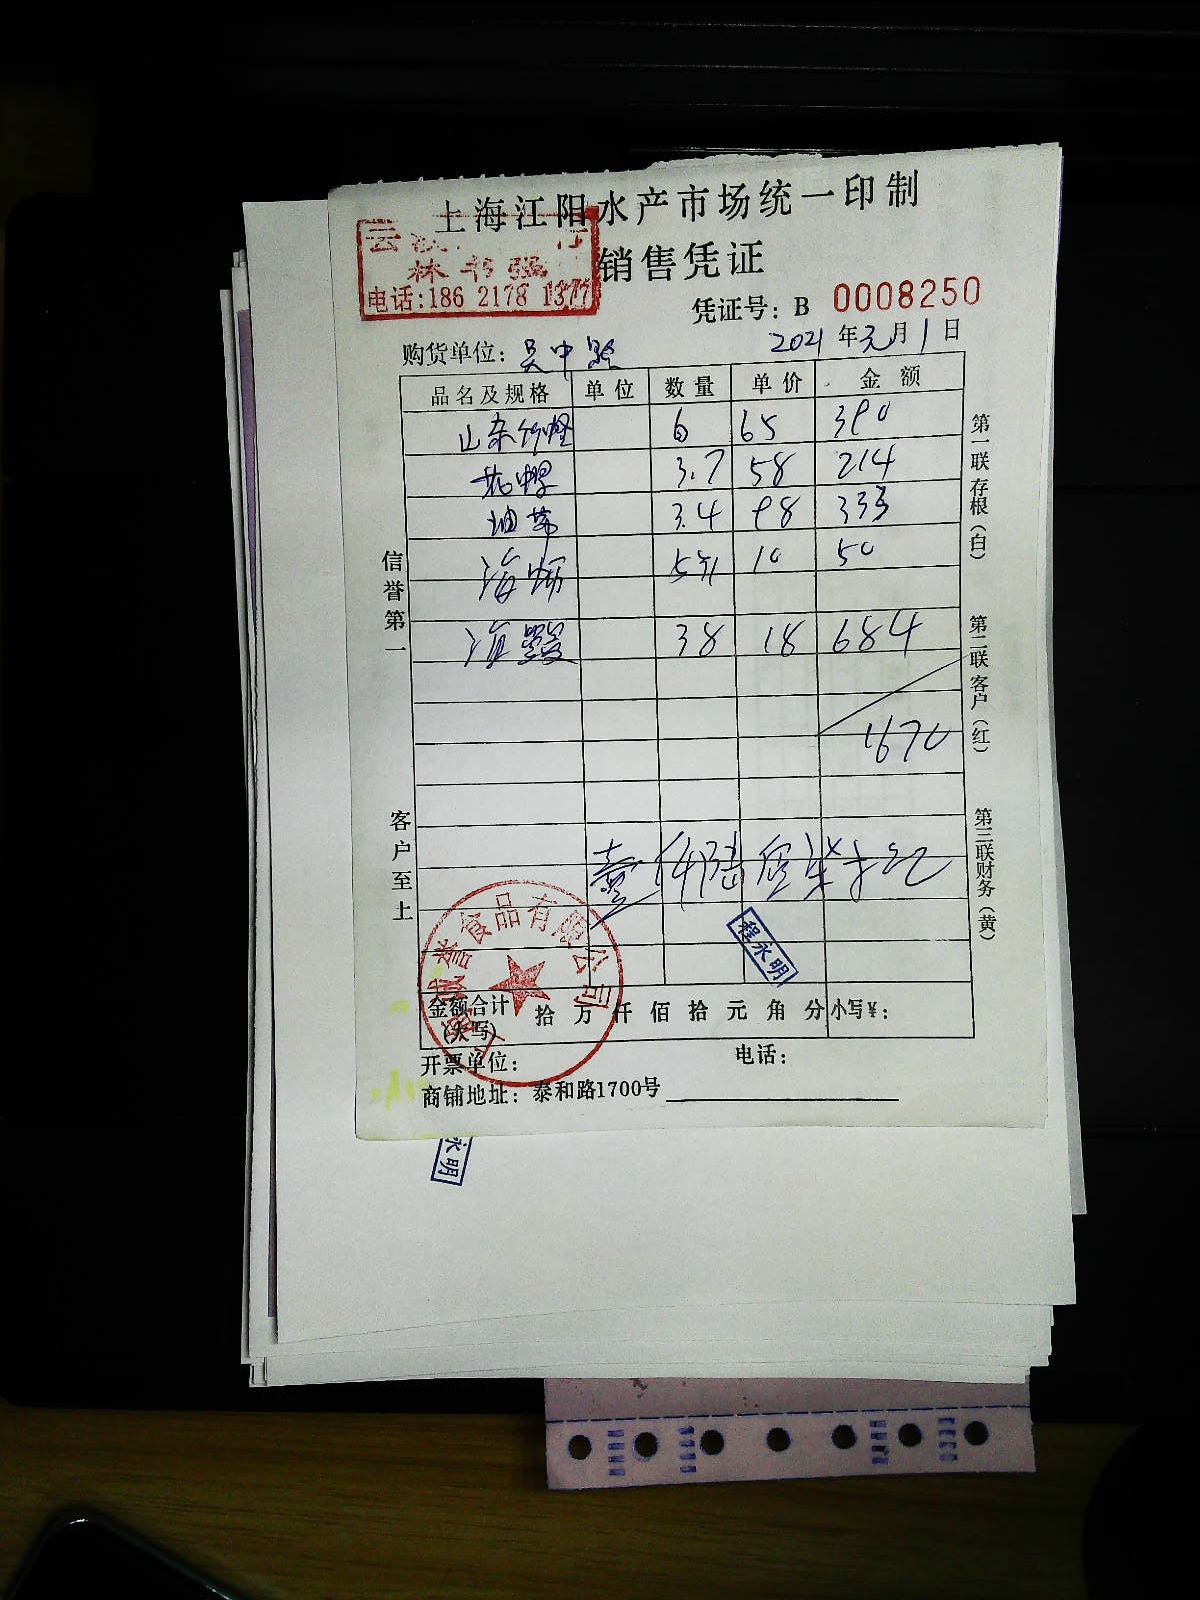 上海江阳水产市场统一印制
销售凭证
林书强
电话:186 2178 1377
凭证号: B 0008250
购货单位: 吴中路 2021 年 元 月 1 日
品名及规格 单位 数量 单价 金额
山东 6 65 390
花 3.7 58 214
油带 3.4 98 333
海蛎 5斤 10 50
海 38 18 684
1670
壹仟陆佰柒拾元
程永明
食品有限公司
金额合计(大写) 拾 万 仟 佰 拾 元 角 分 小写¥:
开票单位: 电话:
商铺地址: 泰和路1700号
信誉第一
客户至上
第一联 存根(白)
第二联 客户(红)
第三联 财务(黄)
永明